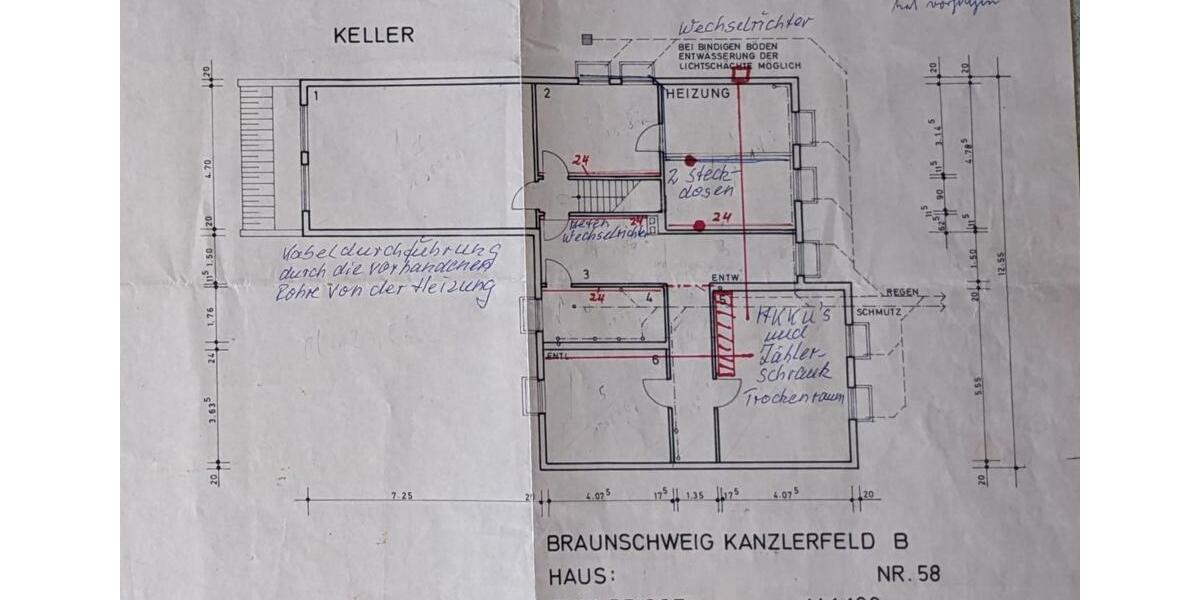 Wechselrichter
KELLER
BEI BINDIGEN BÖDEN
ENTWÄSSERUNG DER
LICHTSCHÄCHTE MÖGLICH
1
2
HEIZUNG
24
2 Steck-
dosen
24
24
Wechselrichter
Kabeldurchführung
durch die vorhandenen
Rohre von der Heizung
3
ENTW.
24
4
5
REGEN
SCHMUTZ
AKKU's
und
Zähler-
schrank
Trockenraum
ENTL.
6
20
4.70
20
1.50
11⁵
1.76
24
3.63⁵
20
20
3.14⁵
11⁵
90
11⁵
62⁵
20
4.78⁵
20
1.50
20
5.55
20
12.55
7.25
20
4.07⁵
17⁵
1.35
17⁵
4.07⁵
20
BRAUNSCHWEIG KANZLERFELD B
HAUS:
NR. 58